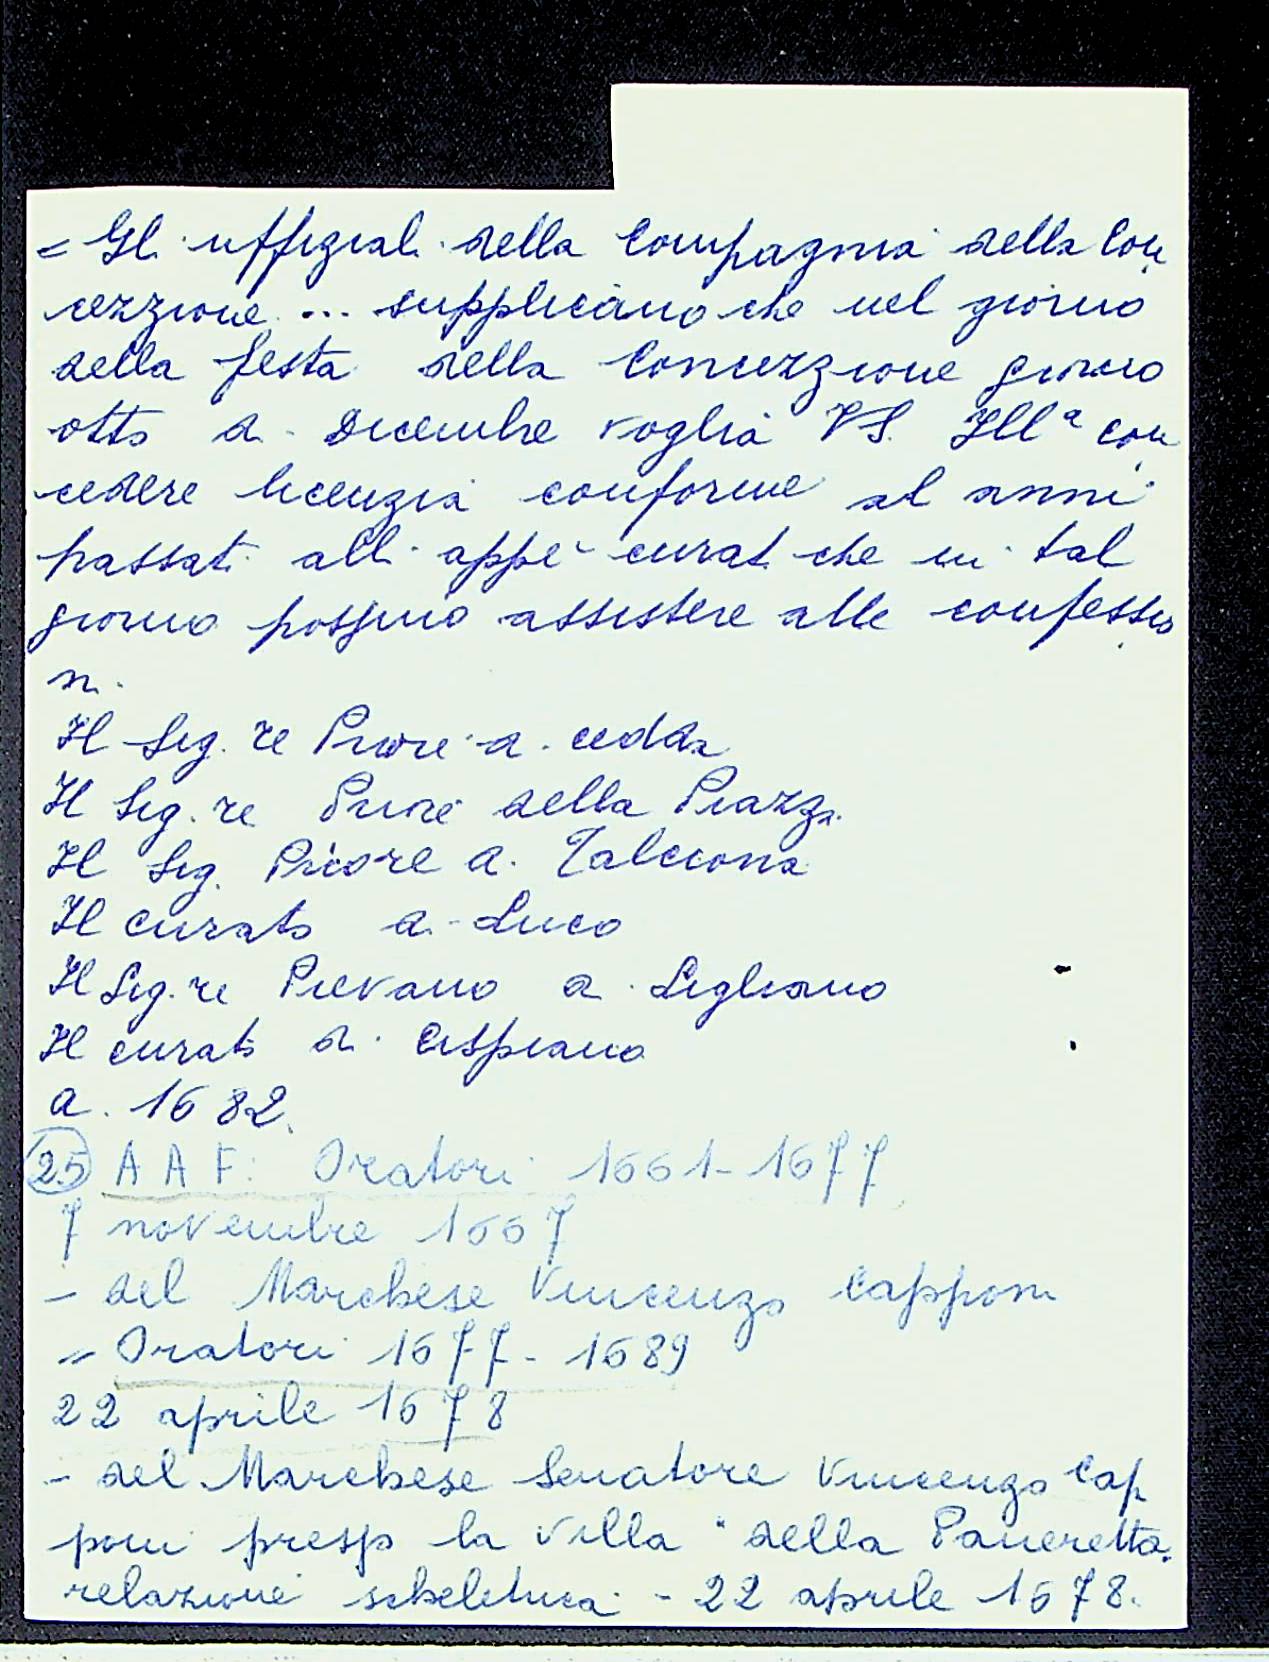 = Gli uffiziali della Compagnia della Con
cezzione ... supplicano che nel giorno
della festa della Concezzione giorno
otto di Dicembre voglia VS. Illª con
cedere licenzia conforme al anni
passati alli appè curati che in tal
giorno possino assistere alle confessio
ni.
Il Sig.re Priore di Cedda
Il Sig.re Priore della Piazza
Il Sig. Priore di Talciona
Il curato di Luco
Il Sig.re Pievano di Ligliano
Il curato di Cispiano
a. 1682.
25 AAF: Oratori 1661-1677
7 novembre 1667
- del Marchese Vincenzo Capponi
= Oratori 1677-1689
22 aprile 1678
- del Marchese Senatore Vincenzo Cap
poni presso la villa della Paneretta.
relazione scheletrica - 22 aprile 1678.